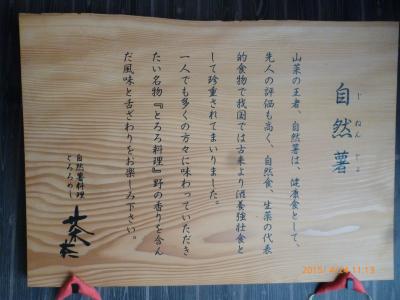 自然薯
じねんじょ
山菜の王者、自然薯は、健康食として、
先人の評価も高く、自然食、生薬の代表
的食物で我国では古来より滋養強壮食と
して珍重されてまいりました。
一人でも多くの方々に味わっていただき
たい名物『とろろ料理』野の香りを含ん
だ風味と舌ざわりをお楽しみ下さい。
自然薯料理
とろろめし
2015/ 4/24 11:13